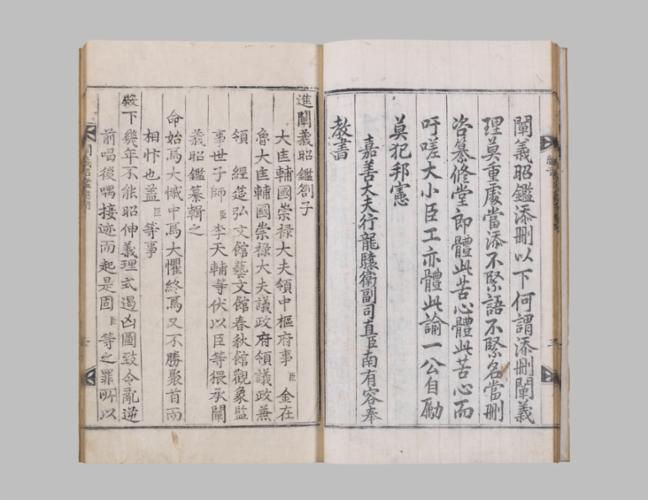 闡義昭鑑添刪以下何謂添刪闡義
理莫重處當添不緊語不緊名當刪
咨纂修堂郞體此苦心體此苦心而
吁嗟大小臣工亦體此諭一公自勵
莫犯邦憲
嘉善大夫行龍驤衛副司直臣南有容奉
敎書
進闡義昭鑑劄子
大匡輔國崇祿大夫領中樞府事臣金在
魯大匡輔國崇祿大夫議政府領議政兼
領 經筵弘文館藝文館春秋館觀象監
事世子師臣李天輔等伏以臣等猥承闡
義昭鑑纂輯之
命始焉大慽中焉大懼終焉又不勝聚首而
相忭也盖臣等事
殿下幾年不能昭伸義理式遏凶圖致令亂逆
前唱後喁接迹而起是固臣等之罪所以